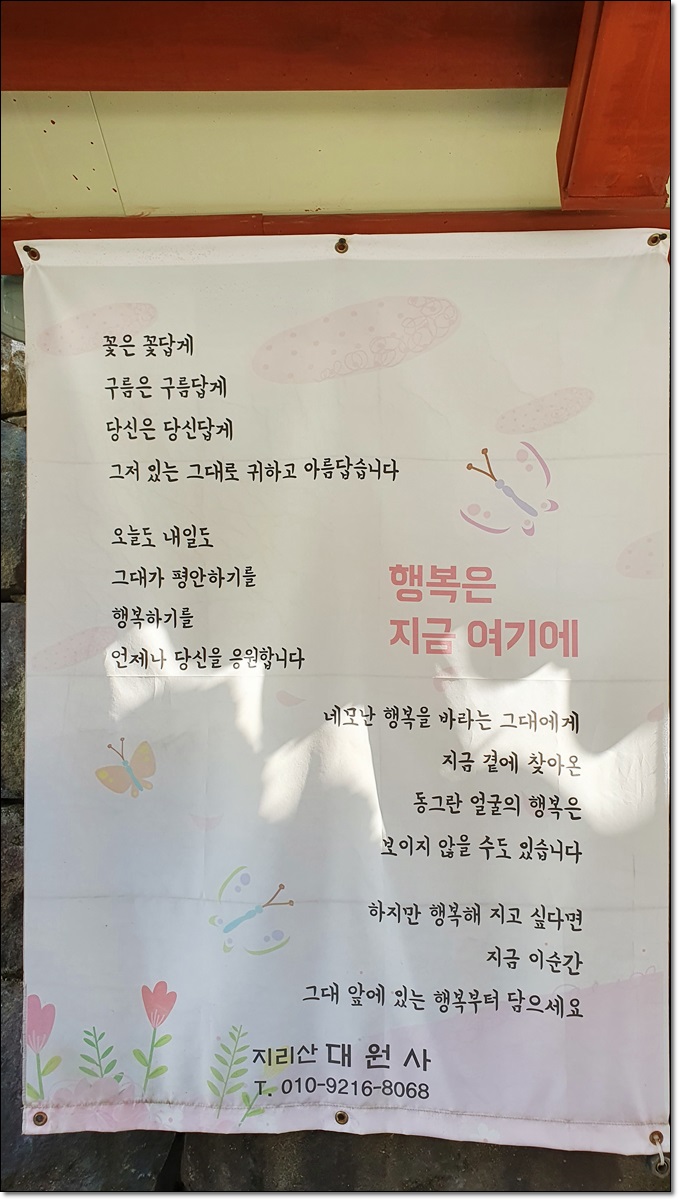 꽃은 꽃답게
구름은 구름답게
당신은 당신답게
그저 있는 그대로 귀하고 아름답습니다
오늘도 내일도
그대가 평안하기를
행복하기를
언제나 당신을 응원합니다
행복은
지금 여기에
네모난 행복을 바라는 그대에게
지금 곁에 찾아온
동그란 얼굴의 행복은
보이지 않을 수도 있습니다
하지만 행복해 지고 싶다면
지금 이순간
그대 앞에 있는 행복부터 담으세요
지리산 대원사
T. 010-9216-8068